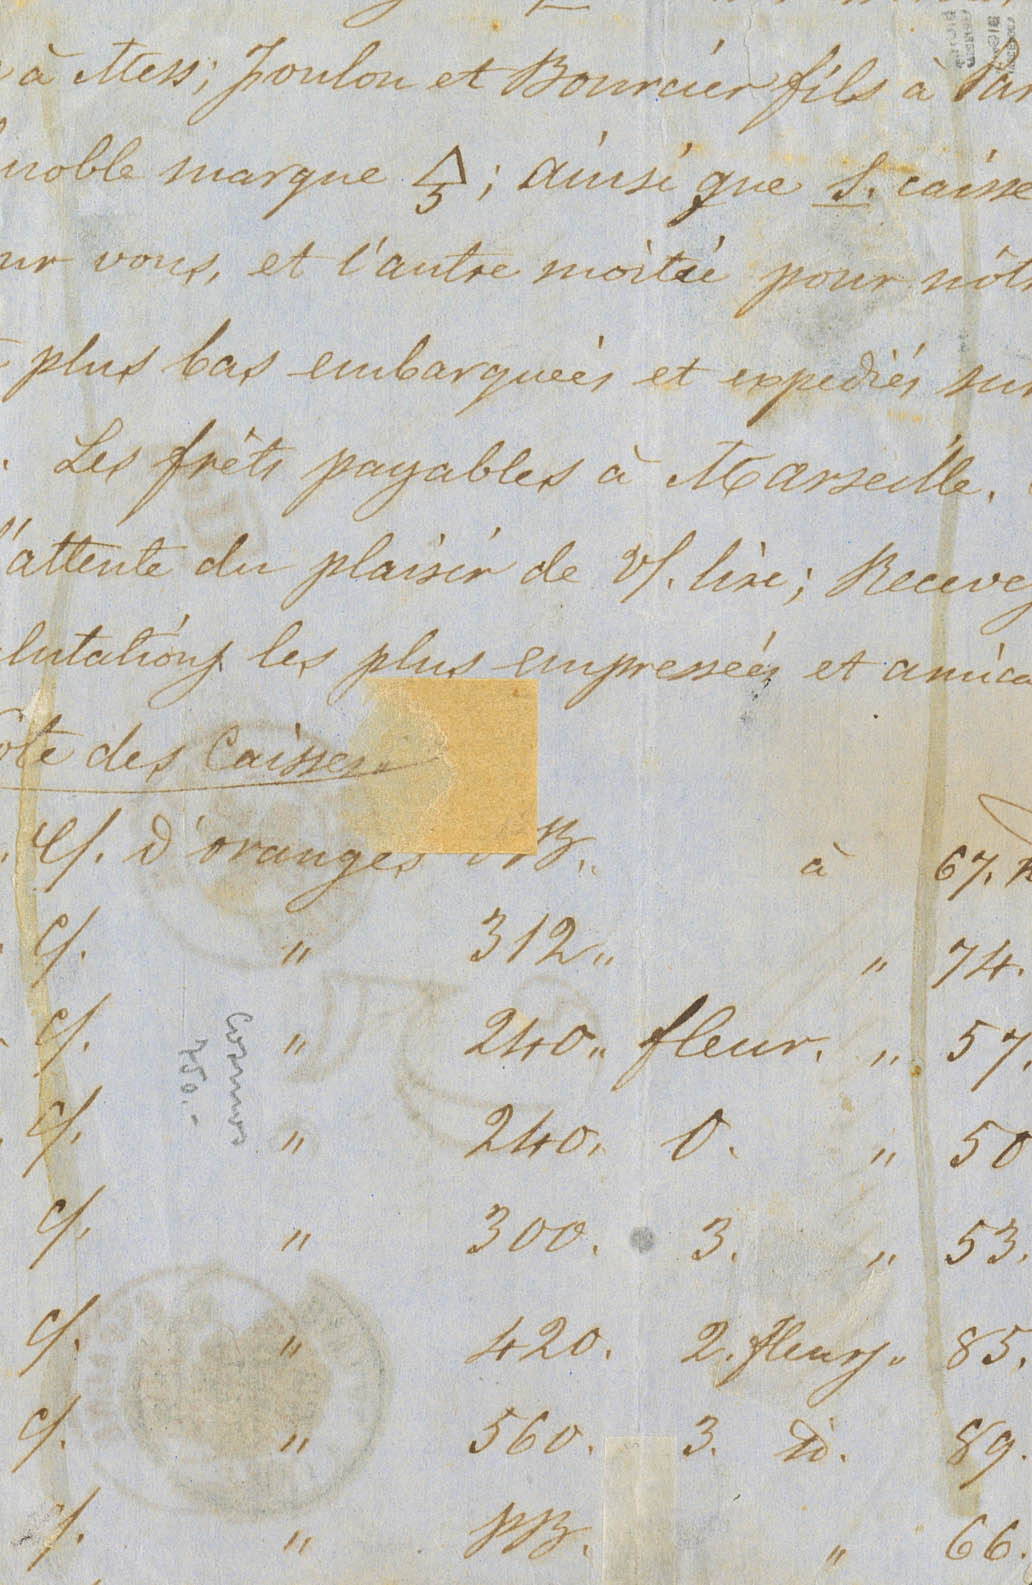 à Mess; Joulou et Bourcier fils à Par
noble marque △ 3; ainsi que S. caisse
ur vous, et l'autre moitié pour nôtr
plus bas embarqueés et expediés sur
Les frêts payables à Marseille.
l'attente du plaisir de V/. lire; Recevez
lutations les plus empresseés et amica
ote des Caisses
C/. d'oranges à 67.
C/. " 312 " " 74.
C/. " 240 " fleur. " 57.
C/. " 240. 0. " 50
C/. " 300. 3. " 53.
C/. " 420. 2. fleurs " 85.
C/. " 560. 3. ID. 89.
C/. " PB. " 66.
750.-